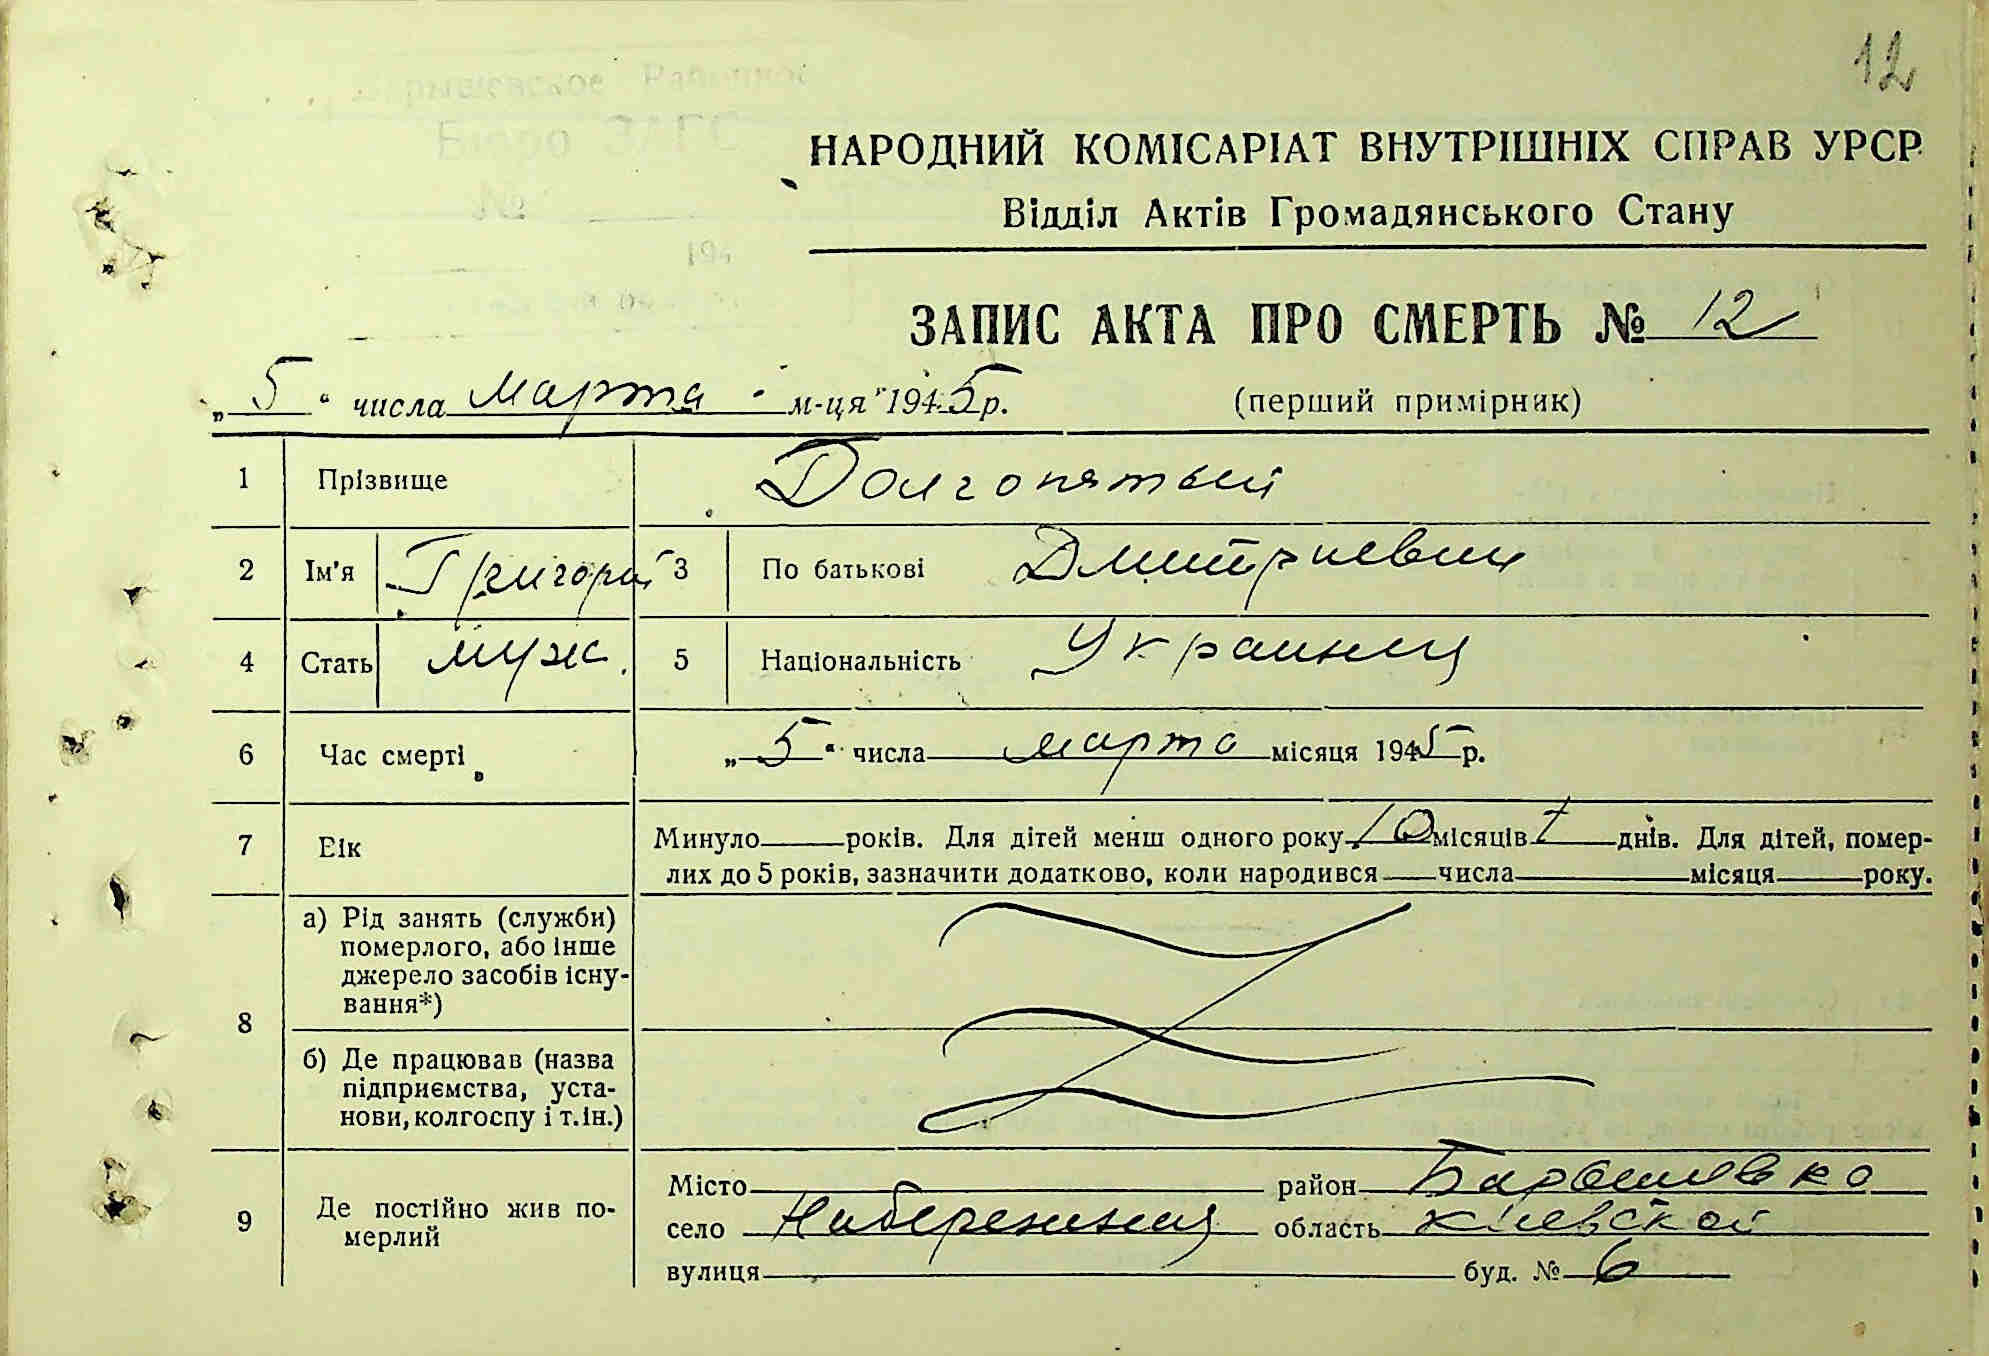 12
НАРОДНИЙ КОМІСАРІАТ ВНУТРІШНІХ СПРАВ УРСР
Відділ Актів Громадянського Стану
ЗАПИС АКТА ПРО СМЕРТЬ № 12
„5“ числа марта м-ця 1945 р. (перший примірник)
1 Прізвище Долгопятый
2 Ім'я Григорий 3 По батькові Дмитриевич
4 Стать муж. 5 Національність Украинец
6 Час смерті „5“ числа марта місяця 1945 р.
7 Вік Минуло років. Для дітей менш одного року 10 місяців днів. Для дітей, помер-
лих до 5 років, зазначити додатково, коли народився числа місяця року.
8 а) Рід занять (служби)
померлого, або інше
джерело засобів існу-
вання*)
б) Де працював (назва
підприємства, уста-
нови, колгоспу і т.ін.)
9 Де постійно жив по-
мерлий
Місто район Барышевка
село область Киевской
вулиця буд. № 6
Бюро ЗАГС
№
194